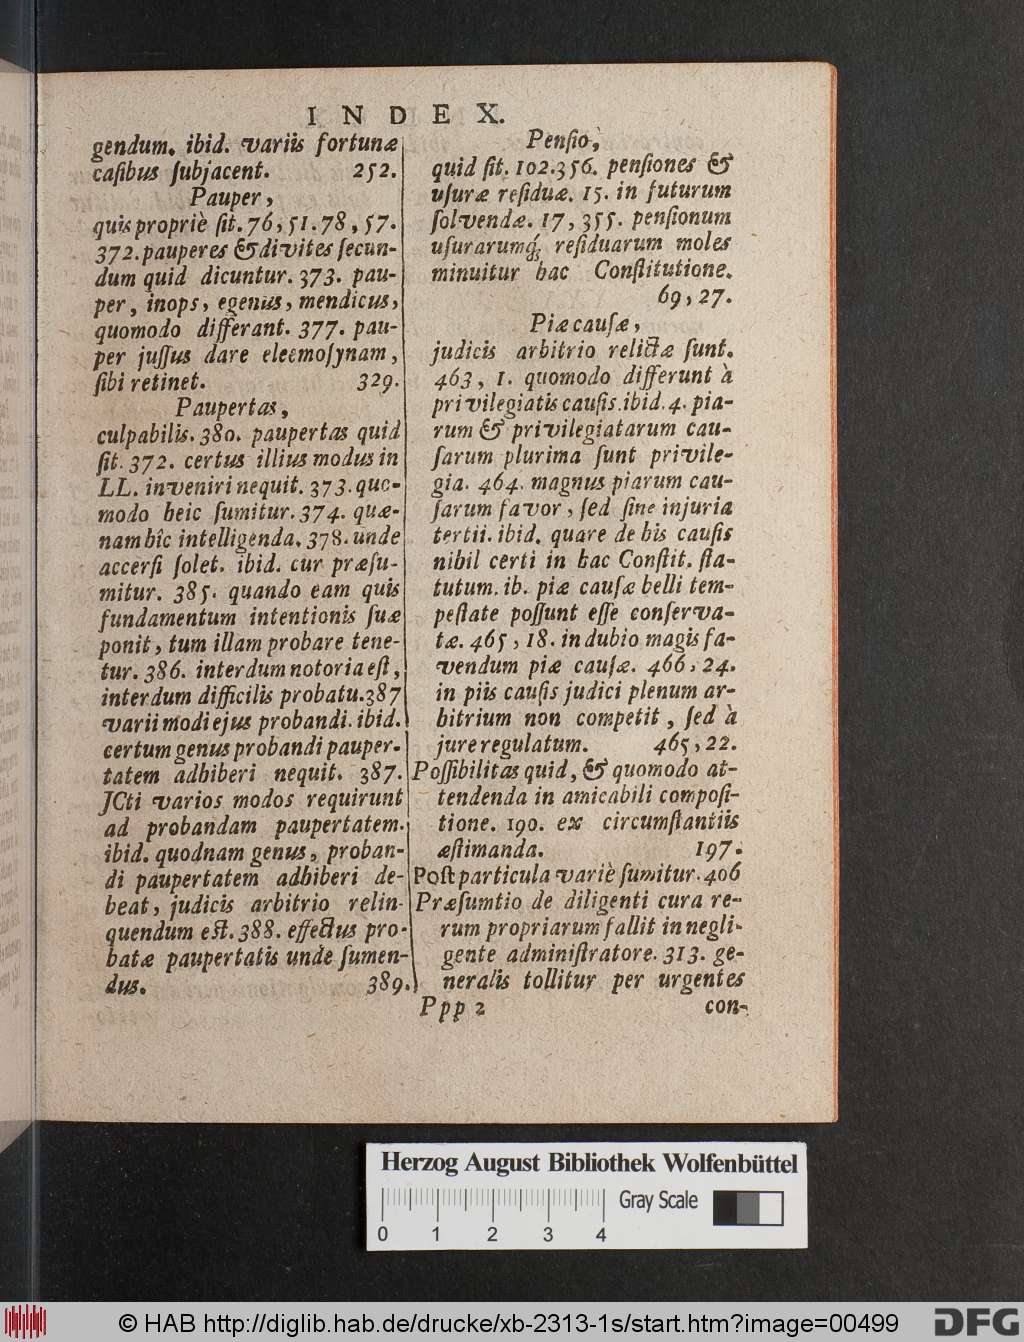 INDEX.
gendum. ibid. variis fortunæ
caſibus ſubjacent. 252.
Pauper,
quis propriè ſit. 76, 51. 78, 57.
372. pauperes & divites ſecun-
dum quid dicuntur. 373. pau-
per, inops, egenus, mendicus,
quomodo differant. 377. pau-
per juſſus dare eleemoſynam,
ſibi retinet. 329.
Paupertas,
culpabilis. 380. paupertas quid
ſit. 372. certus illius modus in
LL. inveniri nequit. 373. quo-
modo heic ſumitur. 374. quæ-
nam hîc intelligenda. 378. unde
accerſi ſolet. ibid. cur præſu-
mitur. 385. quando eam quis
fundamentum intentionis ſuæ
ponit, tum illam probare tene-
tur. 386. interdum notoria eſt,
interdum difficilis probatu. 387
varii modi ejus probandi. ibid.
certum genus probandi pauper-
tatem adhiberi nequit. 387.
JCti varios modos requirunt
ad probandam paupertatem.
ibid. quodnam genus, proban-
di paupertatem adhiberi de-
beat, judicis arbitrio relin-
quendum eſt. 388. effectus pro-
batæ paupertatis unde ſumen-
dus. 389.
Penſio,
quid ſit. 102. 356. penſiones &
uſuræ reſiduæ. 15. in futurum
ſolvendæ. 17, 355. penſionum
uſurarumq́; reſiduarum moles
minuitur hac Conſtitutione.
69, 27.
Piæ cauſæ,
judicis arbitrio relictæ ſunt.
463, 1. quomodo differunt à
privilegiatis cauſis. ibid. 4. pia-
rum & privilegiatarum cau-
ſarum plurima ſunt privile-
gia. 464. magnus piarum cau-
ſarum favor, ſed ſine injuria
tertii. ibid. quare de his cauſis
nihil certi in hac Conſtit. ſta-
tutum. ib. piæ cauſæ belli tem-
peſtate poſſunt eſſe conſerva-
tæ. 465, 18. in dubio magis fa-
vendum piæ cauſæ. 466, 24.
in piis cauſis judici plenum ar-
bitrium non competit, ſed à
jure regulatum. 465, 22.
Poſſibilitas quid, & quomodo at-
tendenda in amicabili compoſi-
tione. 190. ex circumſtantiis
æſtimanda. 197.
Poſt particula variè ſumitur. 406
Præſumtio de diligenti cura re-
rum propriarum fallit in negli-
gente adminiſtratore. 313. ge-
neralis tollitur per urgentes
Ppp 2 con-
Herzog August Bibliothek Wolfenbüttel
Gray Scale
0 1 2 3 4
© HAB http://diglib.hab.de/drucke/xb-2313-1s/start.htm?image=00499
DFG